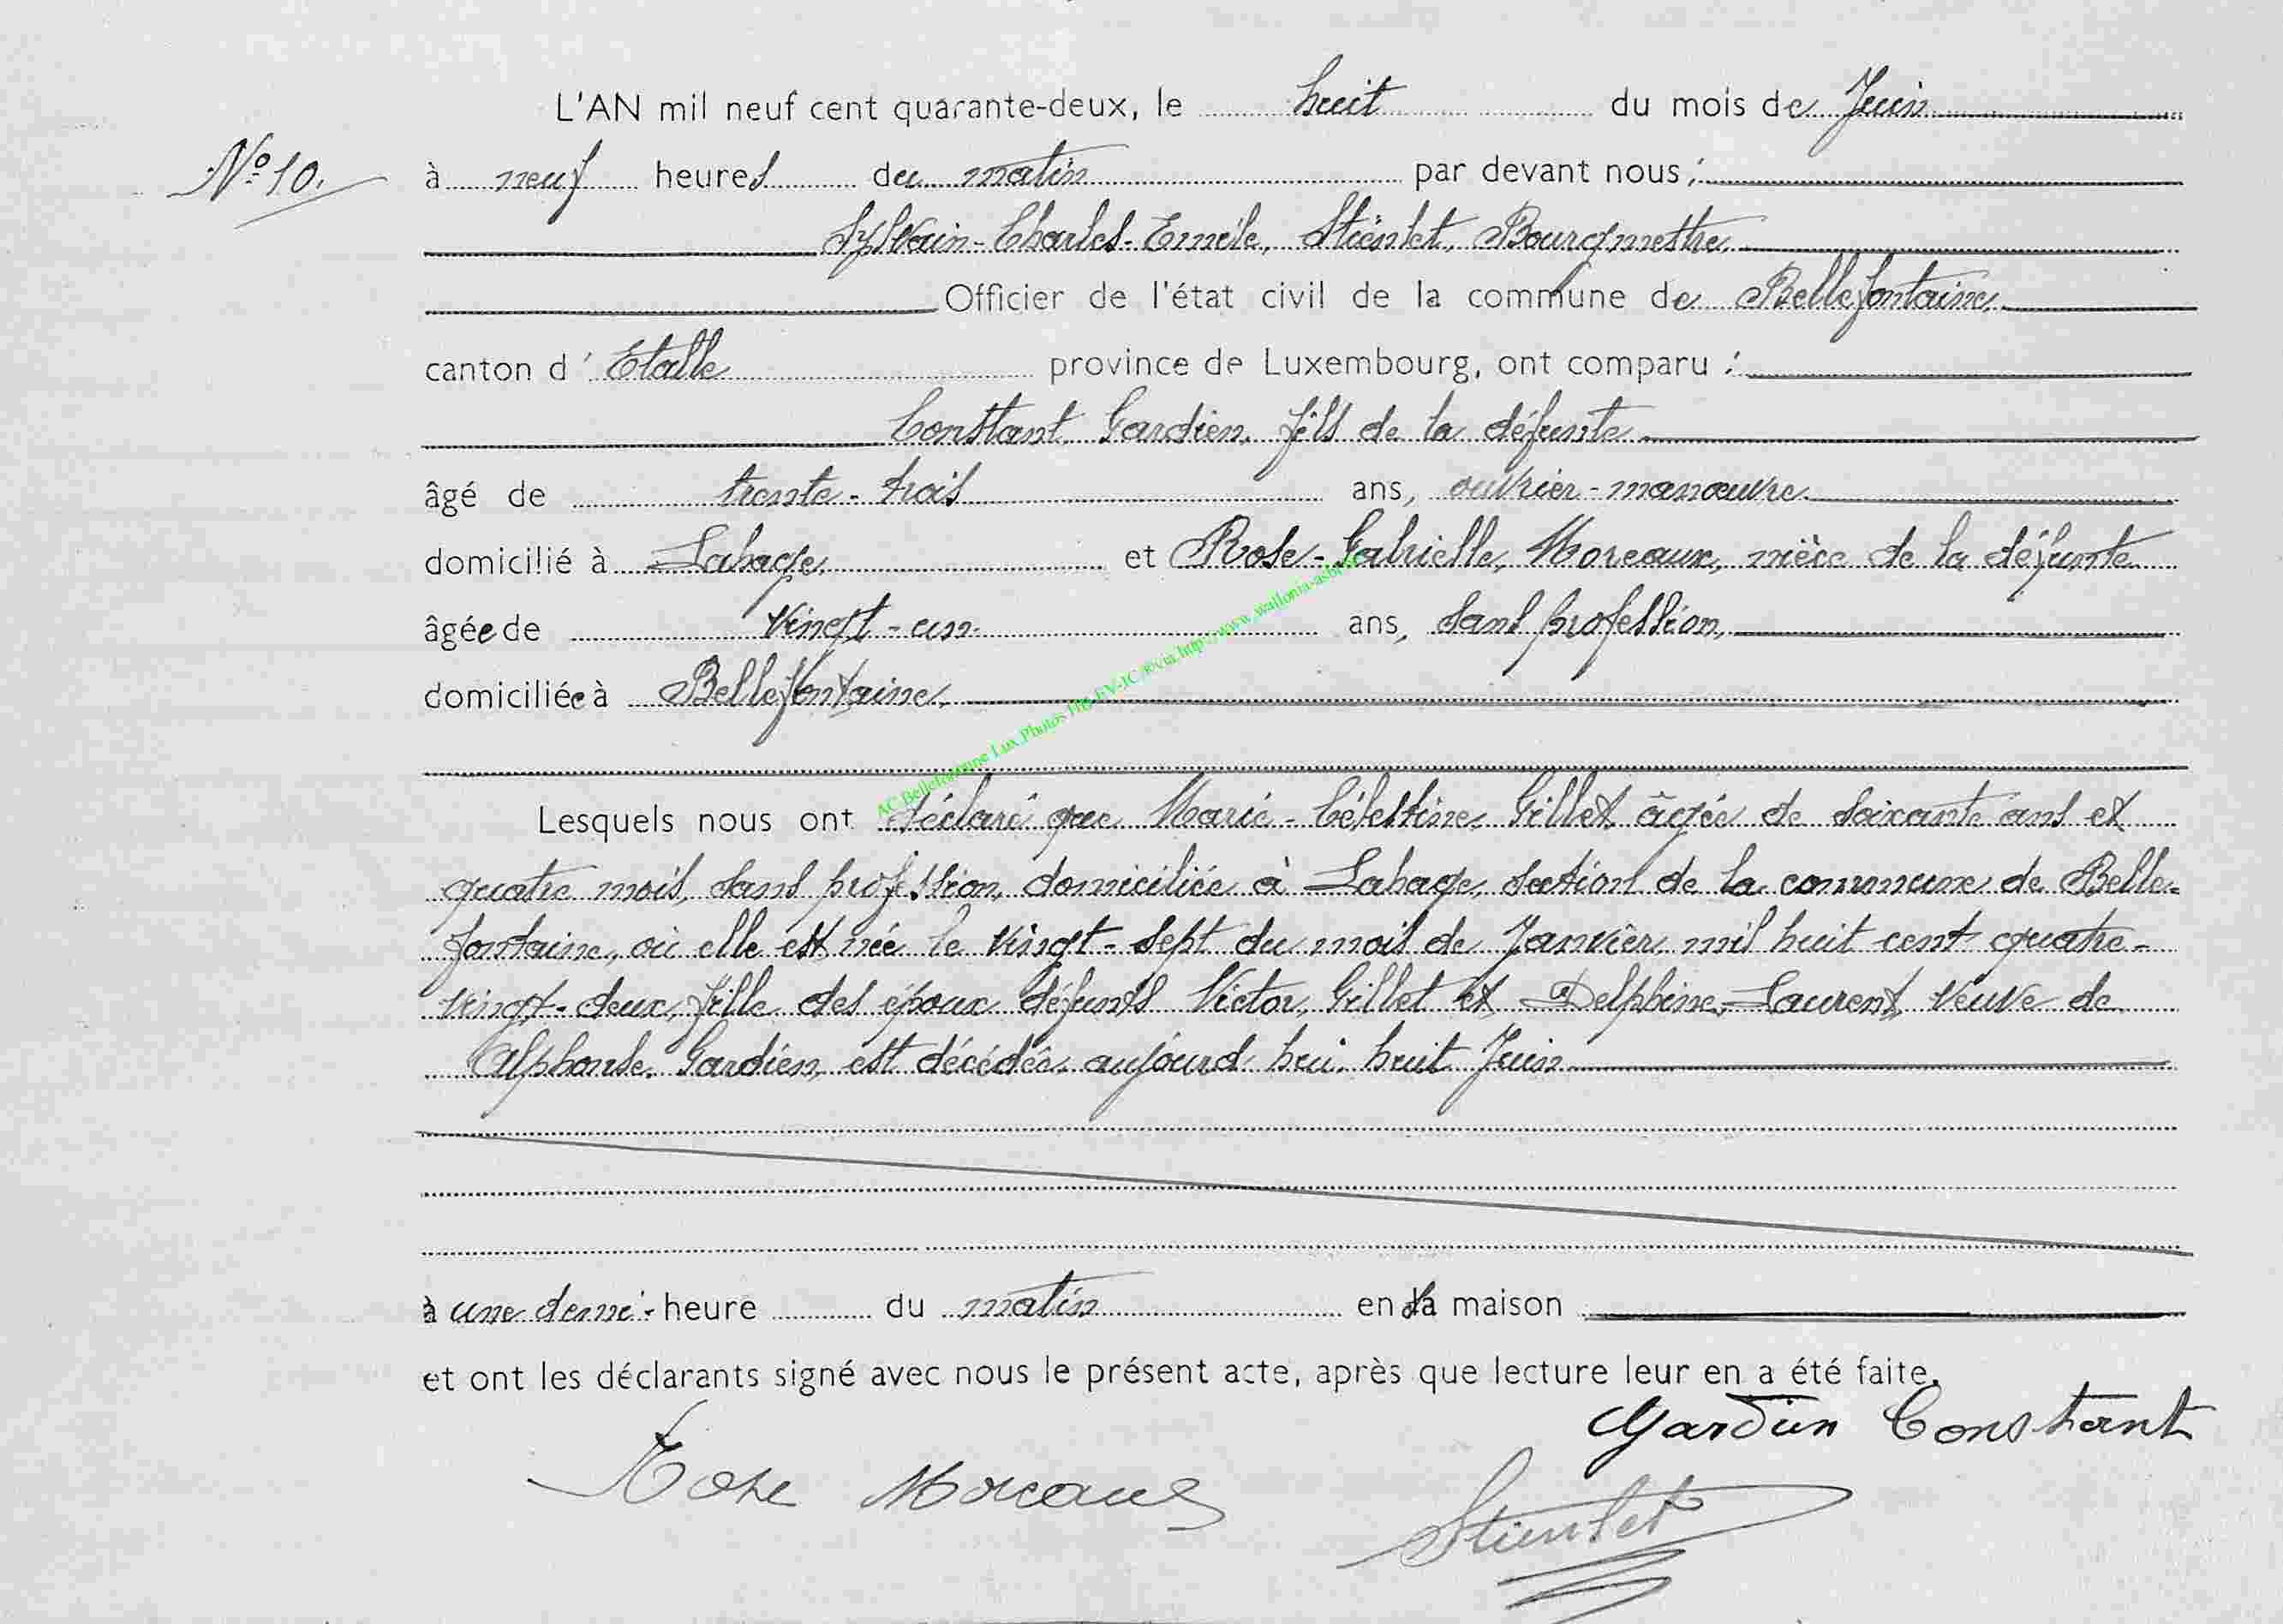 L'AN mil neuf cent quarante-deux, le huit du mois de Juin
N° 10.
à neuf heures du matin par devant nous :
Sylvain-Charles-Emile, Stienlet, Bourgmestre
Officier de l'état civil de la commune de Bellefontaine,
canton d'Etalle province de Luxembourg, ont comparu :
Constant Gardien, fils de la défunte
âgé de trente-trois ans, ouvrier-manœuvre
domicilié à Lahage, et Rose-Gabrielle, Moreaux, nièce de la défunte
âgée de vingt-un ans, sans profession,
domiciliée à Bellefontaine,
AC Bellefontaine Lux Photos via http://www.wallonia-asbl
Lesquels nous ont déclaré que Marie-Célestine, Gillet, âgée de soixante ans et
quatre mois, sans profession, domiciliée à Lahage, section de la commune de Belle-
fontaine, où elle est née le vingt-sept du mois de Janvier mil huit cent quatre-
vingt-deux, fille des époux défunts Victor, Gillet et Delphine, Laurent, veuve de
Alphonse, Gardien, est décédée, aujourd'hui, huit Juin
à une demi-heure du matin en sa maison
et ont les déclarants signé avec nous le présent acte, après que lecture leur en a été faite.
Gardien Constant
Rose Moreaux
Stienlet